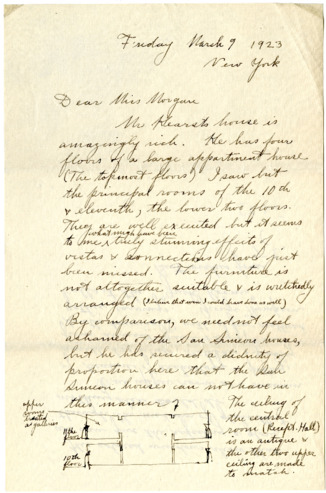 Friday March 9 1923
New York
Dear Miss Morgan
Mr Hearsts house is
amazingly rich. He has four
floors of a large appartment house
(The topmost floors) I saw but
the principal rooms of the 10th
& eleventh, the lower two floors.
They are well executed but it seems
to me what might have been truly stunning effects of
vistas & connections have just
been missed. The furniture is
not altogether suitable & is wretchedly
arranged (I believe that were I could have done as well)
By comparison, we need not feel
ashamed of the San Simeon houses,
but he has secured a dignity of
proportion here that the San
Simeon houses can not have in
this manner?
upper
rooms
treated
as galleries
11th
floor
10th
floor
The ceiling of
the central
room (Recept. Hall)
is an antique &
the other two upper
ceiling are made
to match.